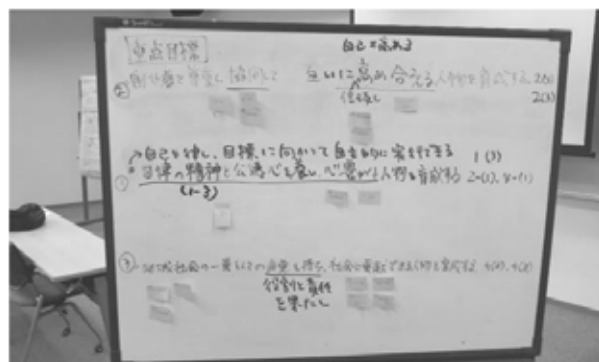 [重点目標]
自己を高める
② 協同して 互いに高め合える人物を育成する 2(1)
2(3)
信頼し
自己を律し、目標に向かって自主的に実行できる 1(3)
① 自律の精神と公徳心を養い、心豊かな人物を育成する 2-(1), 4-(1)
(1-3)
③ 社会の一員としての自覚を持ち、社会に貢献できる人物を育成する
役割と責任
を果たし